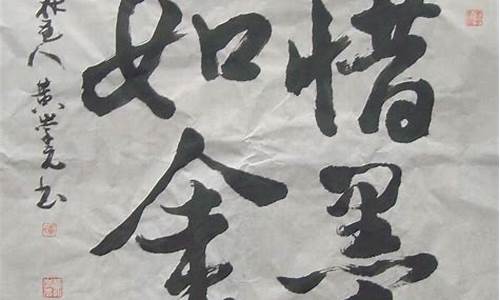 惜墨
如金
道人黄崇元书